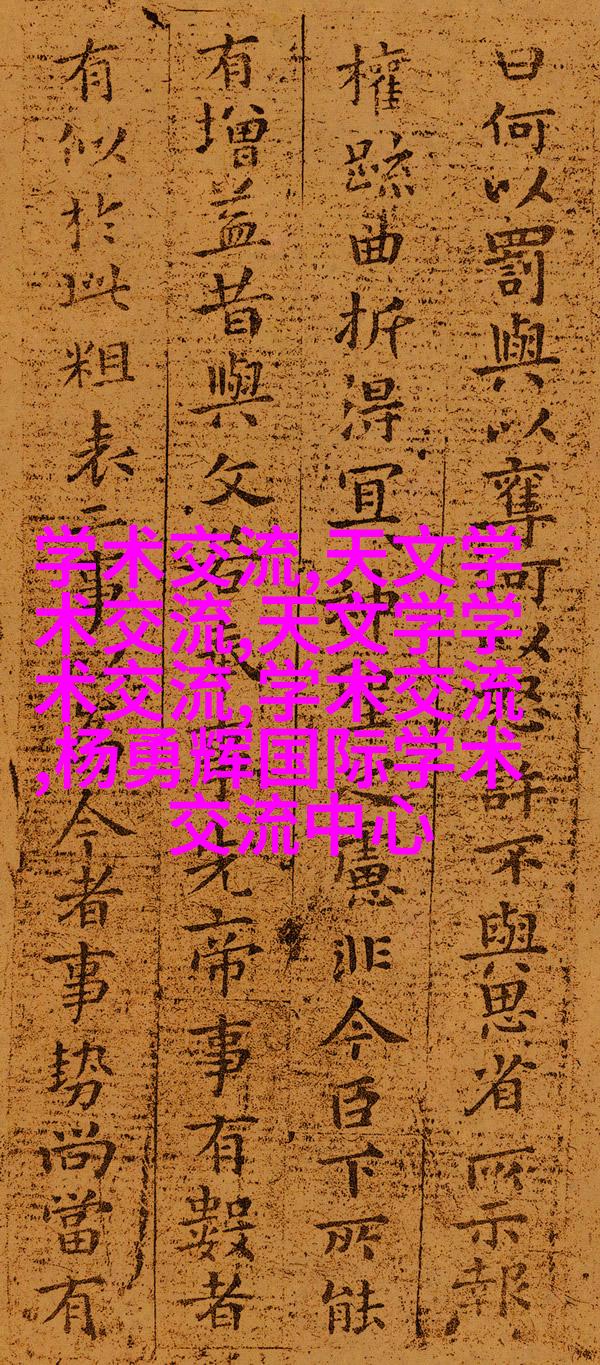 曰何以罰與以奪何以怒許不與思省所示報
權疏曲折得宜神聖之慮非今臣下所能
有增益昔與文若先帝事有數者
有似於此粗表二事今者事勢尚當有
学术交流,天文学
术交流,天文学学
术交流,学术交流
,杨勇辉国际学术
交流中心